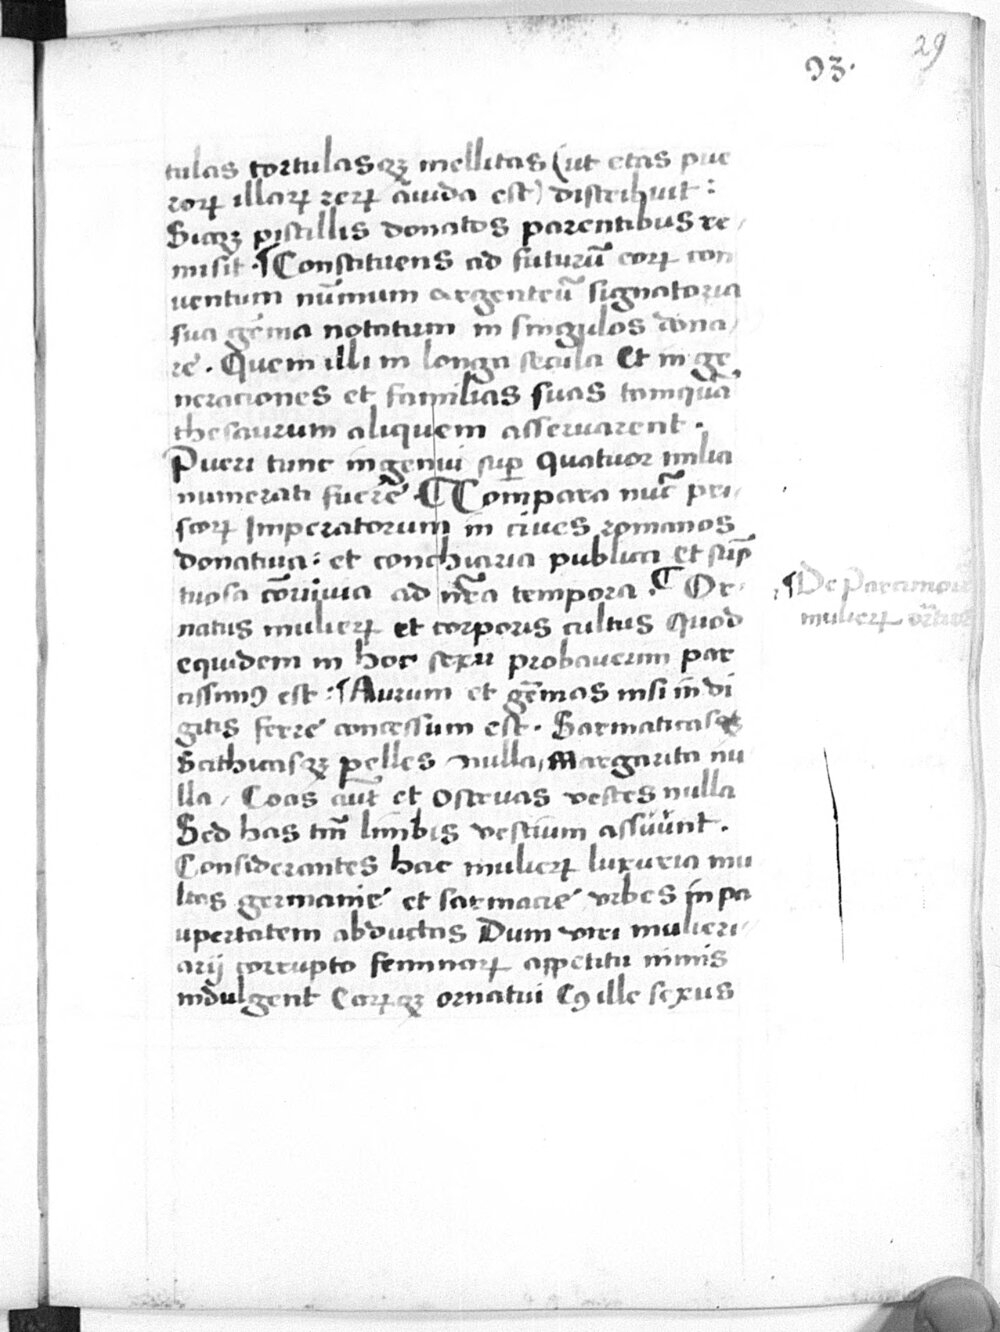 29
93.
tulas tortulasqꝫ mellitas (ut etas pue
roꝝ illaꝝ reꝝ auida est) distribuit :
Sicqꝫ pistillis donatos parentibus re /
misit · ¶ Constituens ad futurū eoꝝ con
uentum nūmum argenteū signatoria
sua gēma notatum in singulos dona /
re . Quem illi in longa secula et in ge
neraciones et familias suas tamquā
thesaurum aliquem asseruarent .
Pueri tunc ingenui suꝑ quatuor milia
numerati fuere . ¶ Compara nūc pri /
scoꝝ Imperatorum in ciues romanos
donatiua : et conchiaria publica et sūp
tuosa cōuiuia ad nr̄a tempora . ¶ Or /
natus mulieꝝ et corporis cultus Quod
equidem in hoc sexu probauerim par
cissimꝯ est : ¶ Aurum et gēmas nisi in di
gitis ferre concessum est . Sarmaticasqꝫ
Scithicasqꝫ pelles nulla, Margarita nu
lla / Coas aūt et Ostruas vestes nulla
Sed has tm̄ limbis vestium assūunt .
Considerantes hac mulieꝝ luxuria mu
ltas germanie et sarmacie vrbes in pa
upertatem abductas Dum viri mulieri /
arij corrupto feminaꝝ appetitu nimis
indulgent Eaꝝqꝫ ornatui Cꝯ ille sexus
¶ De Parcimoni
mulieꝝ